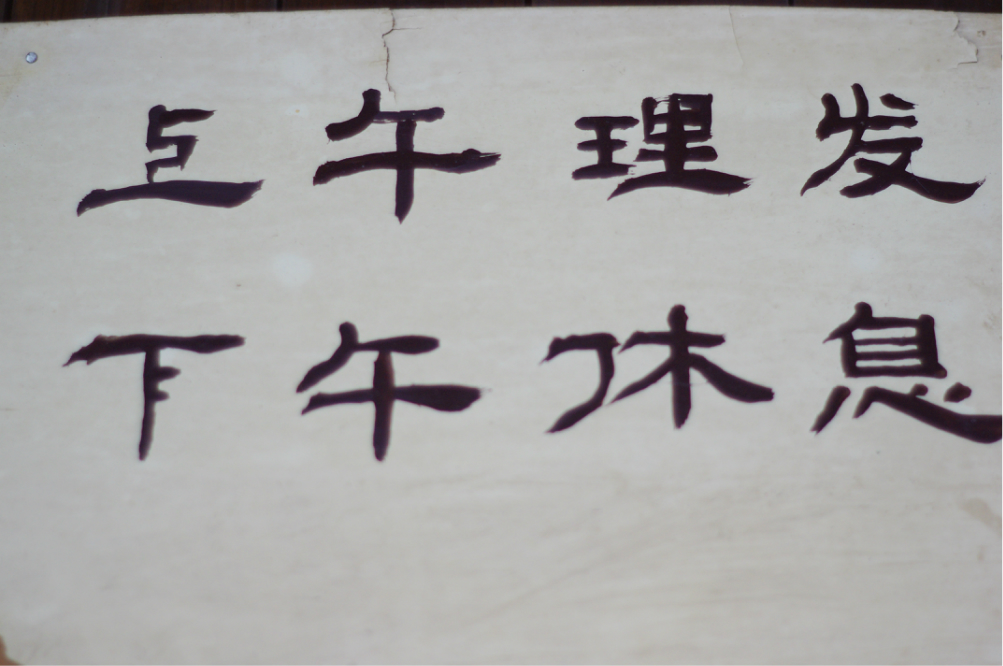 上午理发
下午休息